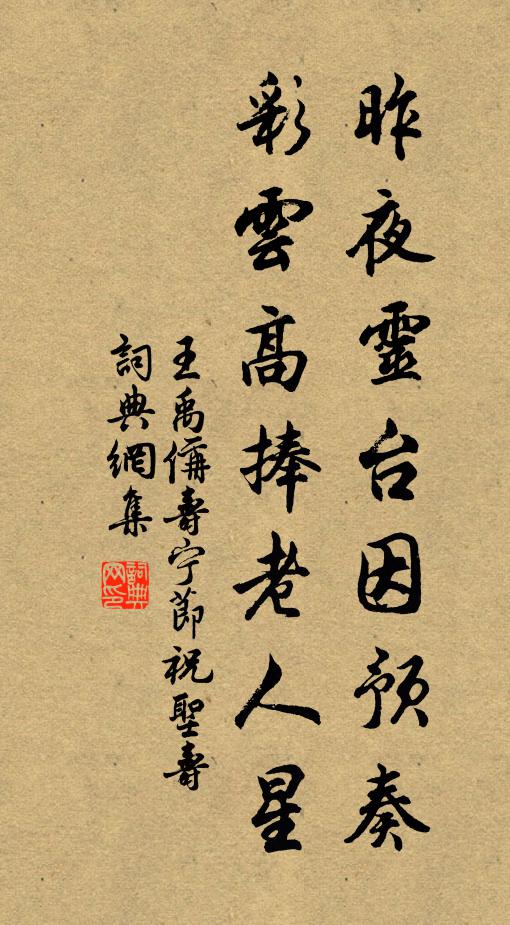 昨夜靈台因預奏
彩雲高捧老人星
王禹偁壽宁節祝聖壽
詞典網集
詞典網印